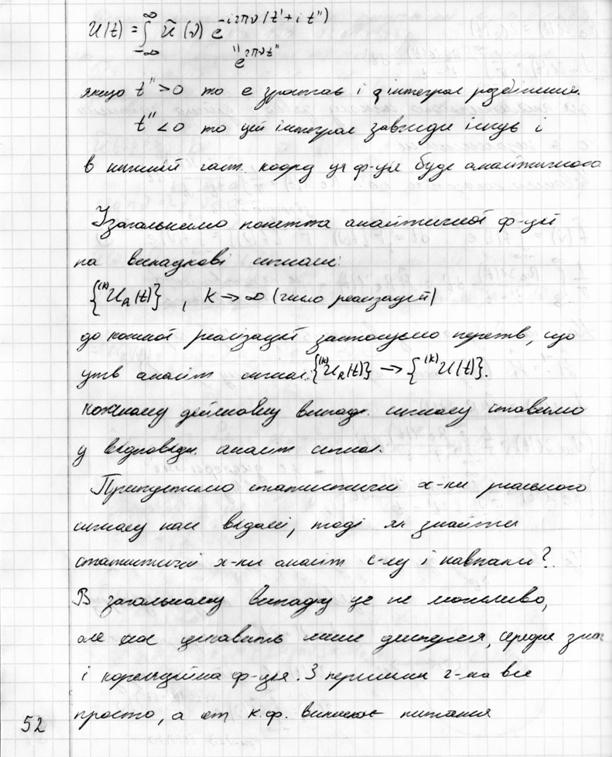 U(t) = ∫_{-∞}^{∞} Ũ(ν) e^{-i2πν(t' + i t'')}
e^{2πνt''}
якщо t'' > 0 то e зростає і інтеграл розбіжний.
t'' < 0 то цей інтеграл завжди існує і
в нижній част. коорд ця ф-ція буде аналітичною
Узагальнимо поняття аналітичної ф-ції
на випадкові сигнали:
{⁽ᵏ⁾U_R(t)}, K → ∞ (число реалізацій)
до кожної реалізації застосуємо перетв, що
утв аналіт сигнал {⁽ᵏ⁾U_R(t)} → {⁽ᵏ⁾U(t)}.
кожному дійсному випадк. сигналу ставимо
у відповідн. аналіт сигнал.
Припустимо статистичні х-ки реального
сигналу нам відомі, тоді як знайти
статистичні х-ки аналіт с-лу і навпаки?
В загальному випадку це не можливо,
але нас цікавить лише дисперсія, середнє знач
і кореляційна ф-ція. З першими 2-ма все
просто, а от к.ф. викликає питання
52